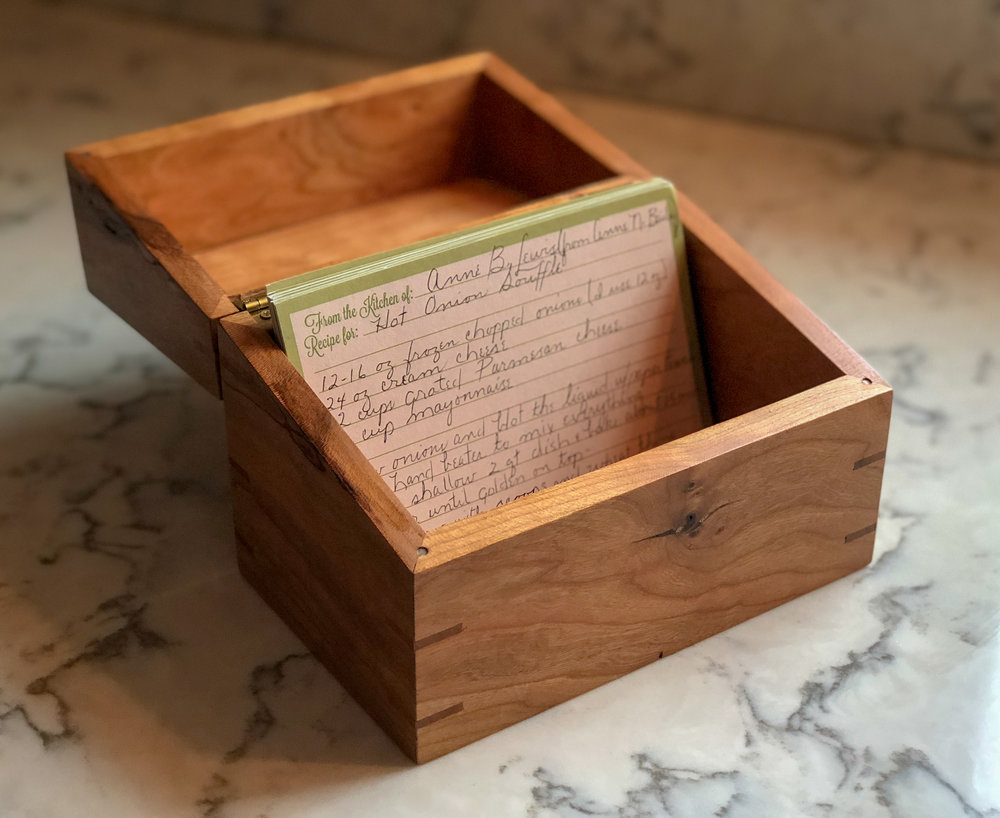 From the Kitchen of: Anne By Lewis from Anne N.
Recipe for: Hot Onion Souffle
12-16 oz frozen chopped onions (I use 12 oz)
24 oz cream cheese
2 cups grated Parmesan cheese
cup mayonnaise
onions and blot the liquid w/paper
hand beater to mix everything
shallow 2 qt dish & bake
until golden on top
with scoops and